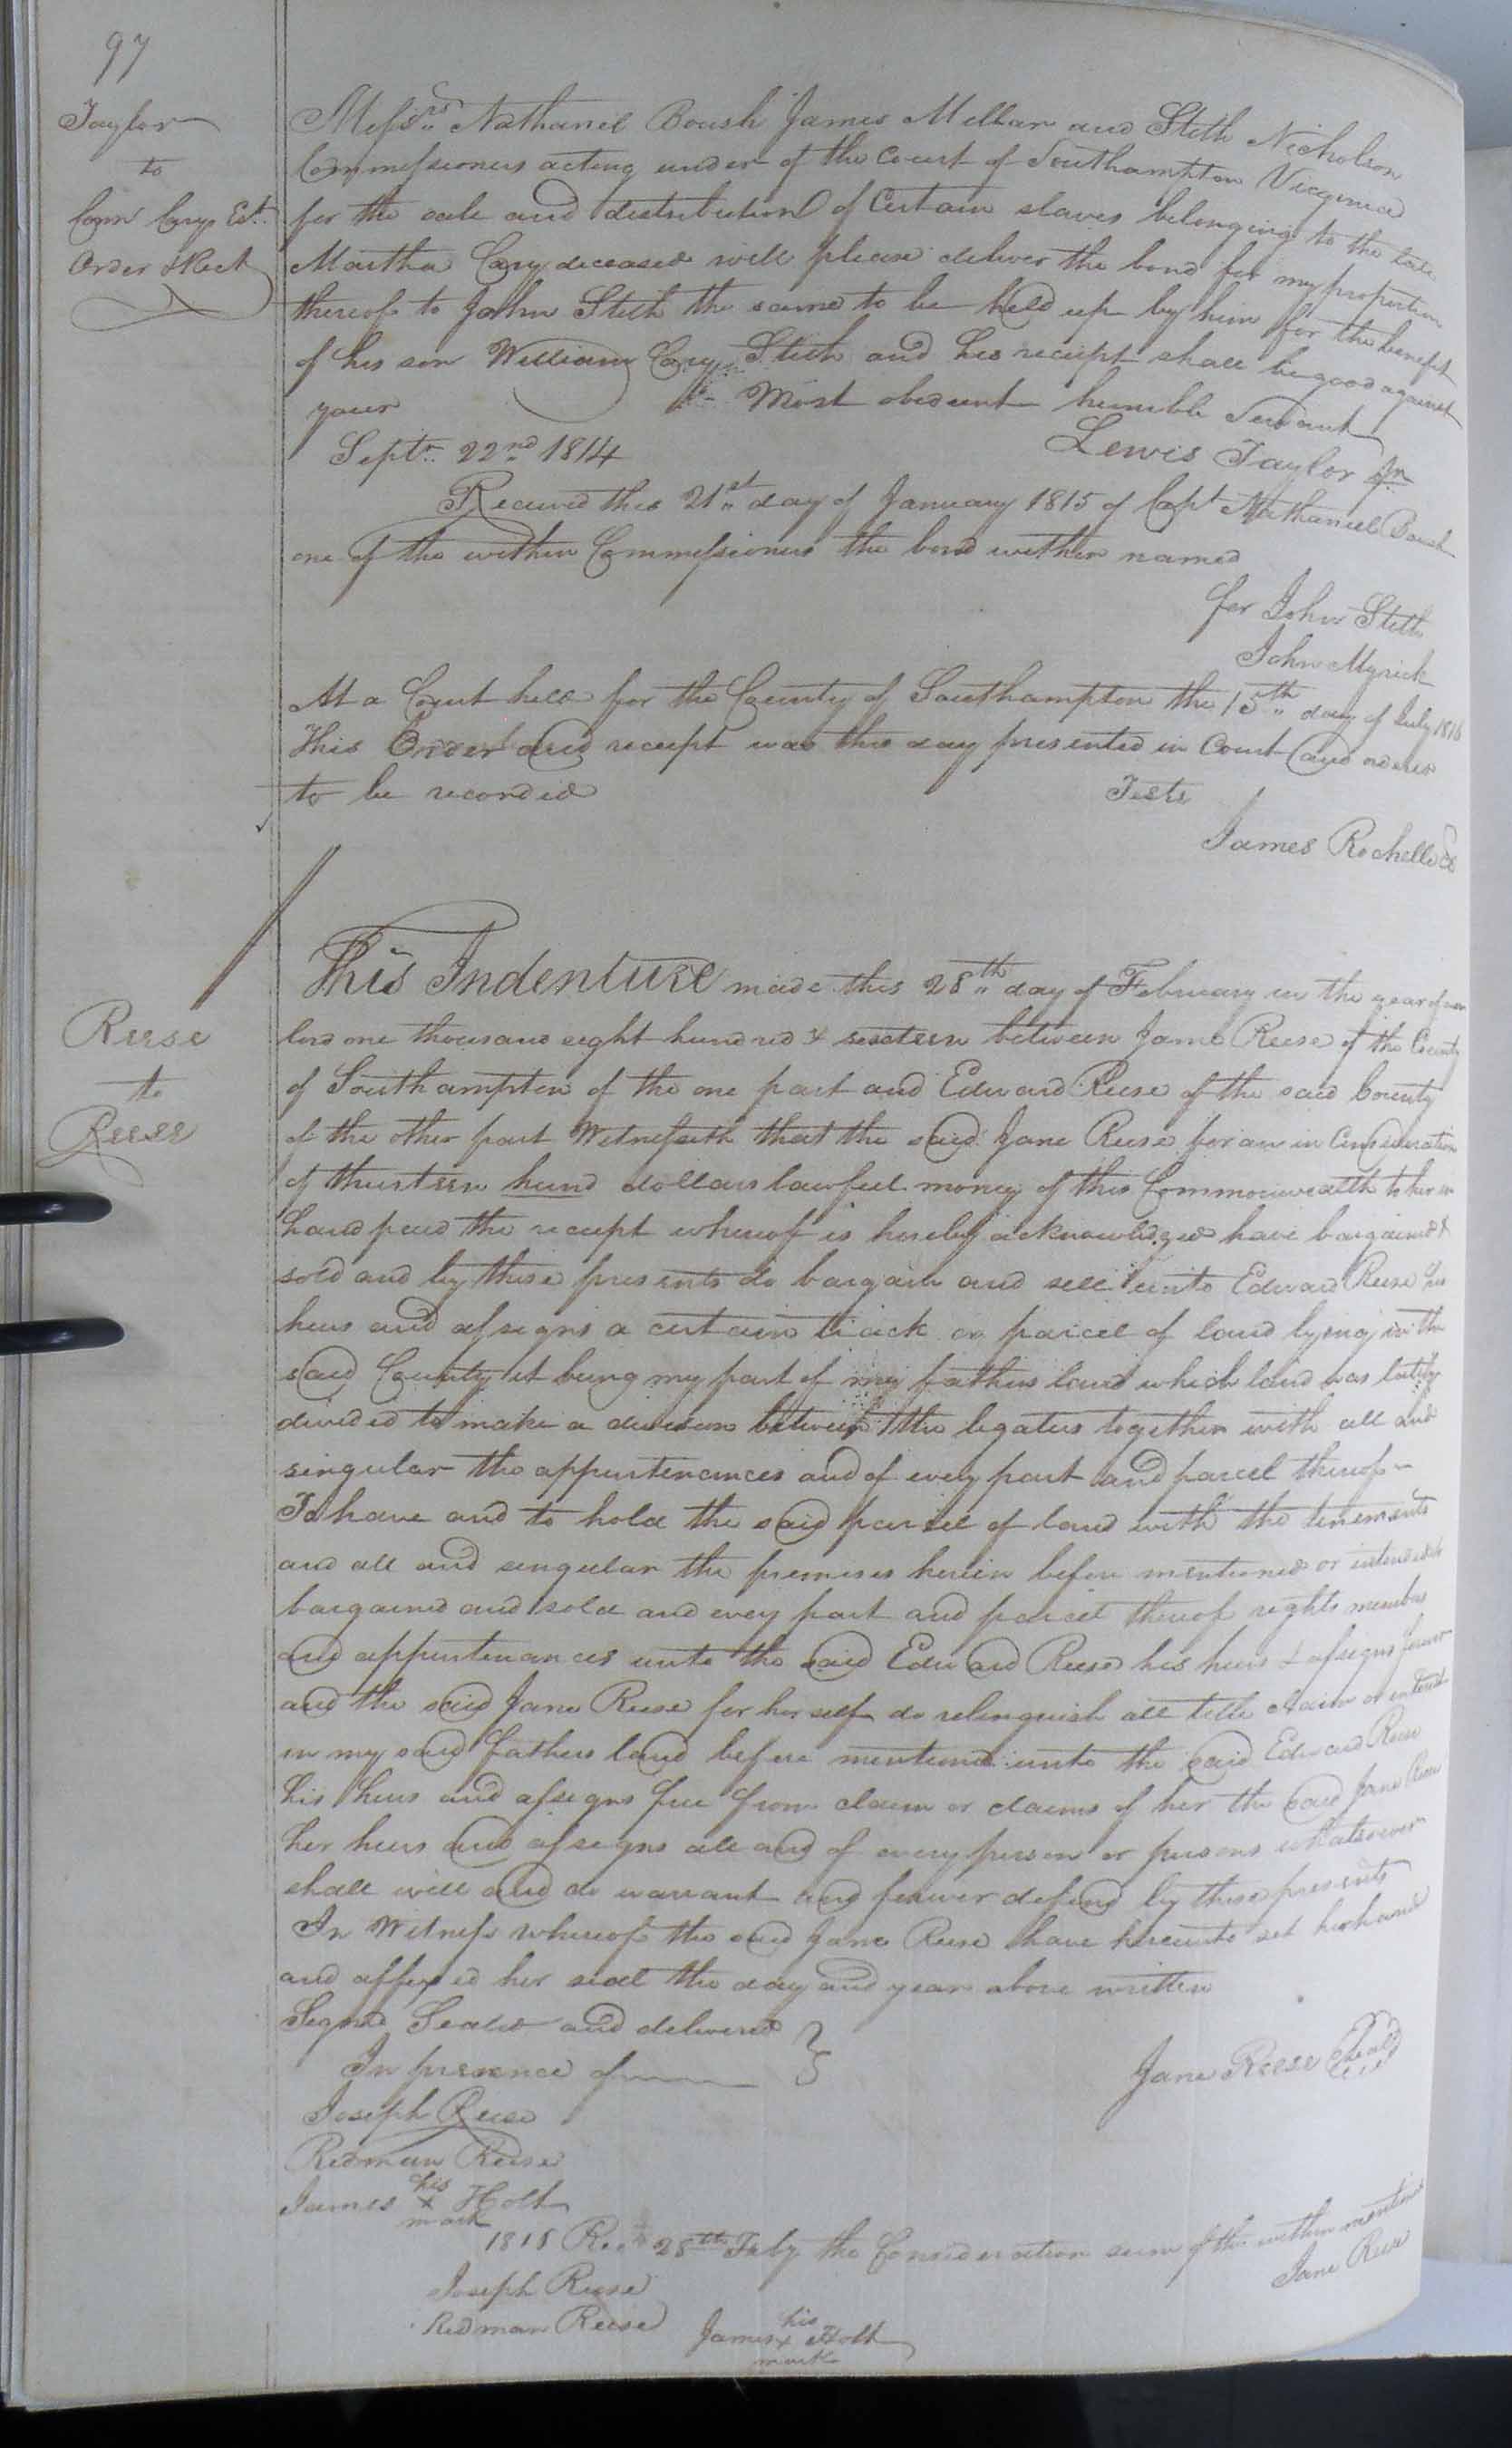 97
Taylor
to
Comr Carys Est.
Order & Rect
Messrs Nathaniel Boush James Mellar and Stith Nicholson
Commissioners acting under of the Court of Southampton Virginia
for the sale and distribution of Certain slaves belonging to the late
Martha Cary deceased will please deliver the bond for my proportion
thereof to John Stith the same to be held up by him for the benefit
of his son William Cary Stith and his receipt shall be good against
your Most obedient humble Servant
Septr. 22nd 1814
Lewis Taylor Jr
Received this 21st day of January 1815 of Capt Nathaniel Boush
one of the within Commissioners the bond within named
for John Stith
John Myrick
At a Court held for the County of Southampton the 15th day of July 1816
This Order and receipt was this day presented in Court and ordered
to be recorded
Teste
James Rochelle Cl
Reese
to
Reese
This Indenture made this 28th day of February in the year of our
lord one thousand eight hundred & sixteen between Jane Reese of the County
of Southampton of the one part and Edward Reese of the said County
of the other part Witnesseth that the said Jane Reese for an in Consideration
of thirteen hund dollars lawful money of this Commonwealth to her in
hand paid the receipt whereof is hereby acknowledged have bargained &
sold and by these presents do bargain and sell unto Edward Reese his
heirs and assigns a certain track or parcel of land lying in the
said County it being my part of my fathers land which land was lately
divided to make a division between the legatees together with all and
singular the appurtenances and of every part and parcel thereof
To have and to hold the said parcel of land with the tenements
and all and singular the premises herein before mentioned or intended to
bargained and sold and every part and parcel thereof rights members
and appurtenances unto the said Edward Reese his heirs & assigns forever
and the said Jane Reese for herself do relinquish all title claim or interest
in my said fathers land before mentiond unto the said Edward Reese
his heirs and assigns free from claim or claims of her the said Jane Reese
her heirs and assigns all and of every person or persons whatsoever
shall will and do warrant and forever defend by these presents
In Witness whereof the said Jane Reese have hereunto set her hand
and affixed her seal the day and year above written
Signd Seald and delivered
In presence of
Jane Reese Seal
Joseph Reese
Redman Reese
James his x mark Holt
1816 Recd 28th Feby the Consideration sum of the within mentiond
Jane Reese
Joseph Reese
Redman Reese
James his x mark Holt